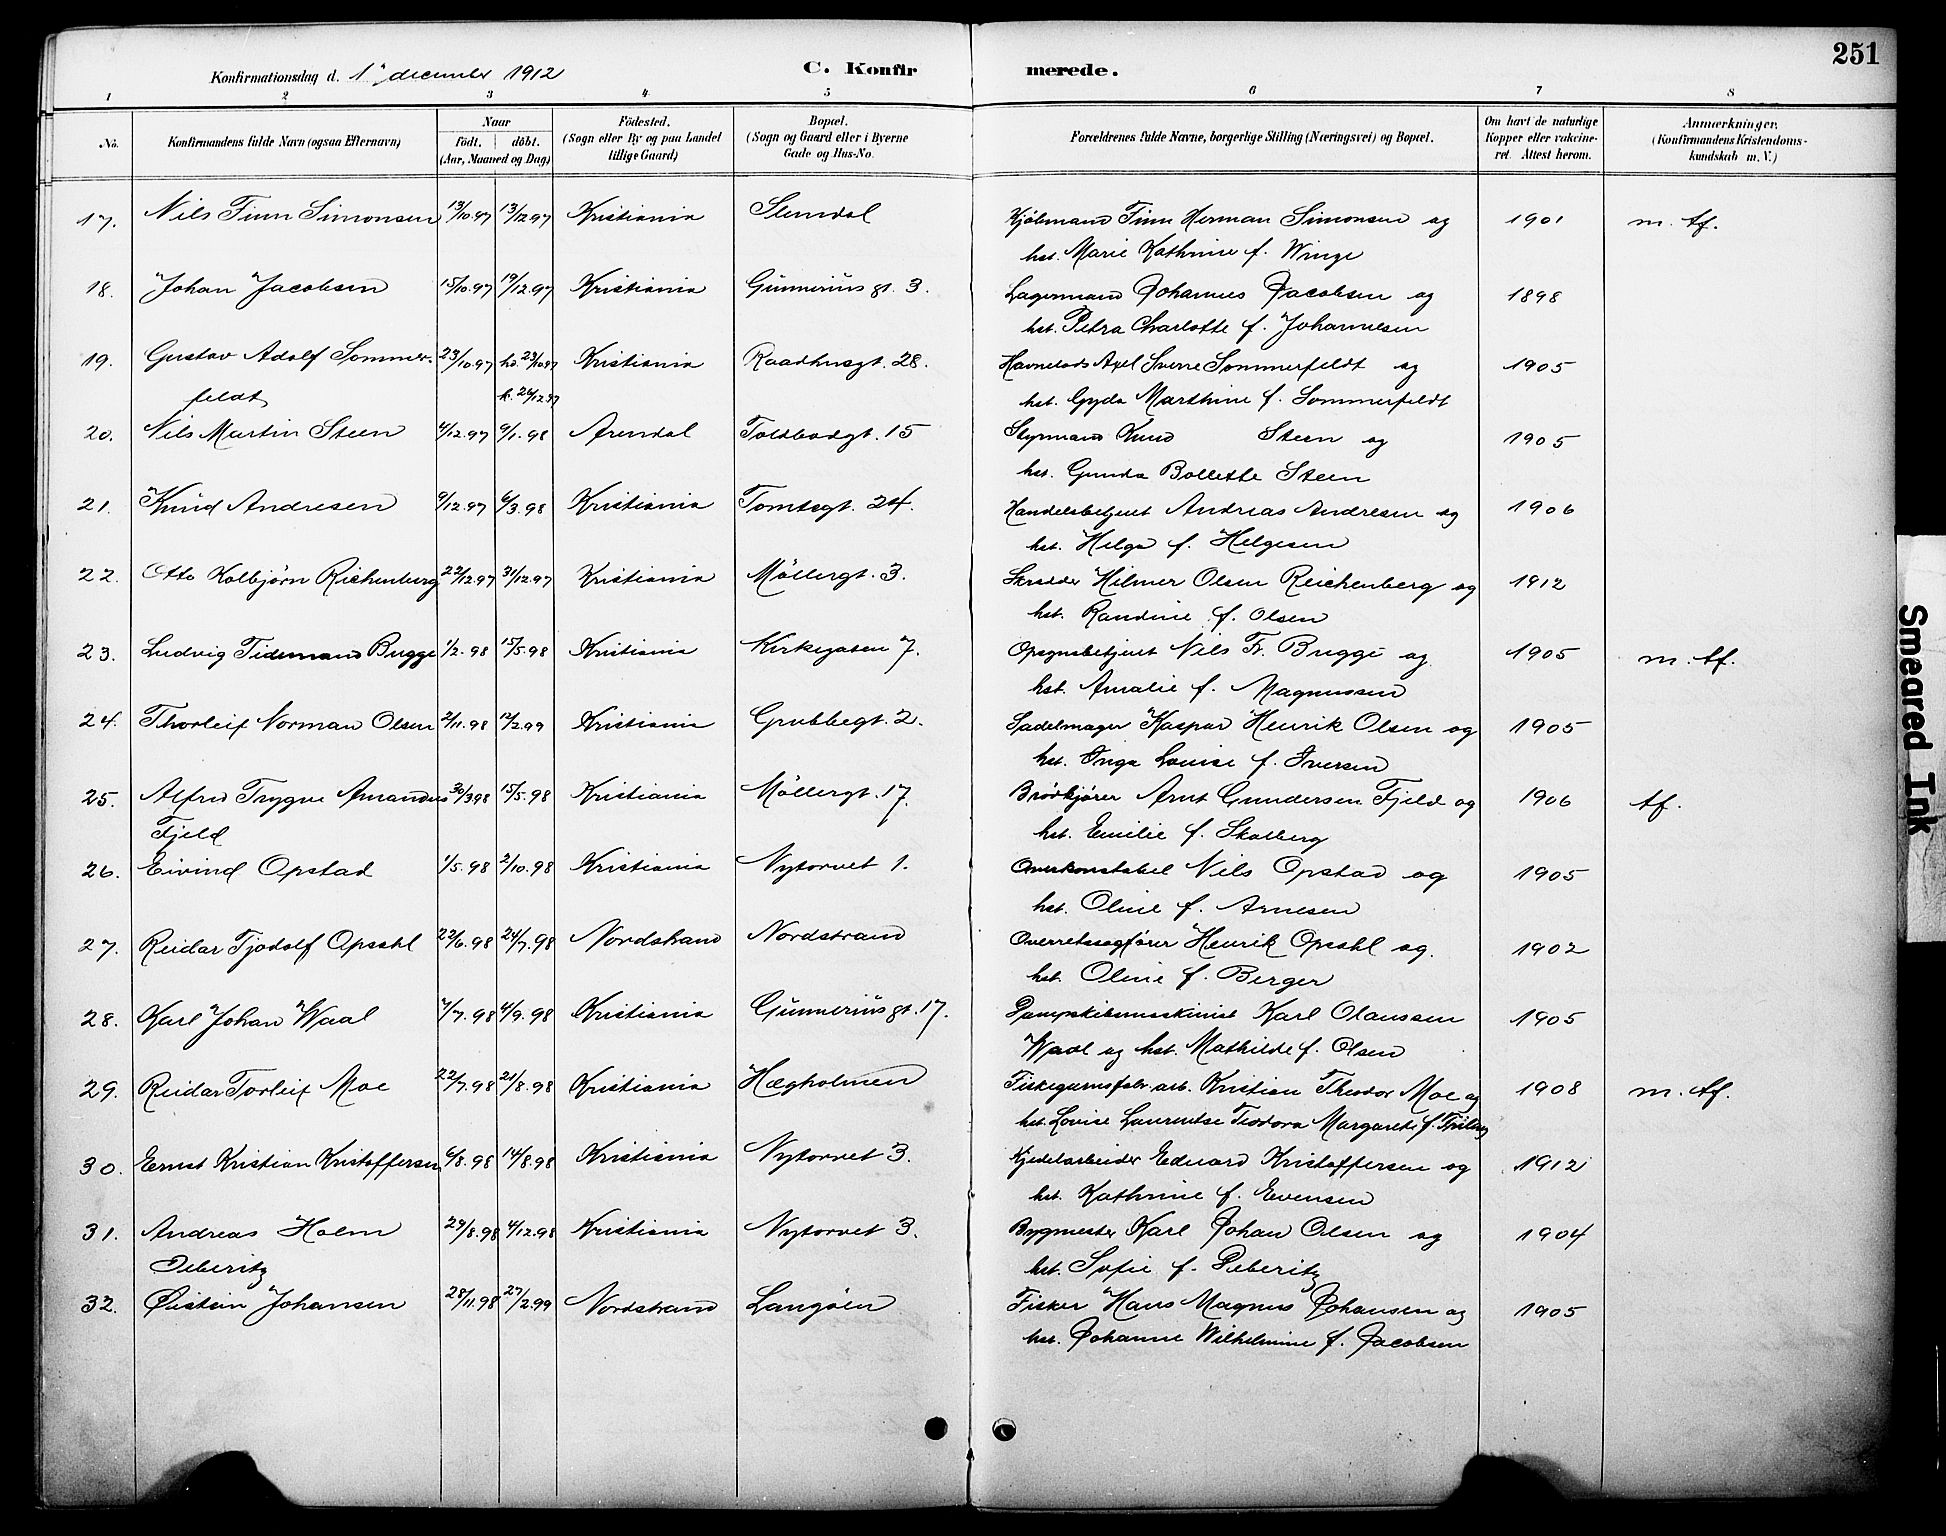 251
Konfirmationsdag d. 1ste december 1912 C. Konfirmerede.
1 2 3 4. 5 6 7 8
No. Konfirmandens fulde Navn (ogsaa Efternavn) Naar født. døbt. (Aar, Maaned og Dag) Fødested. (Sogn eller By og paa Landet tillige Gaard) Bopæl. (Sogn og Gaard eller i Byerne Gade og Hus-No. Forældrenes fulde Navne, borgerlige Stilling (Næringsvei) og Bopæl. Om havt de naturlige Kopper eller vakcineret. Attest herom. Anmærkninger. (Konfirmandens Kristendomskundskab m. V.)
17. Nils Finn Simonsen 13/10.97 13/12.97 Kristiania Slemdal Kjøbmand Finn Herman Simonsen og 1901 m. tf.
hst. Marie Kathrine f. Winge
18. Johan Jacobsen 15/10.97 19/12.97 Kristiania Gunnerius gt. 3. Lagermand Johannes Jacobsen og 1898
hst. Petra Charlotte f. Johannesen
19. Gustav Adolf Sommer- 23/10.97 hd. 23/10.97 Kristiania Raadhusgt. 28. Havnelods Axel Sverre Sommerfeldt og 1905
feldt k. 26/12.97 hst. Gyda Marthine f. Sommerfeldt
20. Nils Martin Steen 4/12.97 9/1.98 Arendal Toldbodgt. 15 Styrmand Knud Steen og 1905
hst. Gunda Bollette Steen
21. Knud Andresen 9/12.97 6/3.98 Kristiania Tomtegt. 24. Handelsbetjent Andreas Andresen og 1906
hst. Helga f. Helgesen
22. Otto Kolbjørn Reichenberg 22/12.97 31/12.97 Kristiania Møllergt. 3. Skrædder Hilmer Olsen Reichenberg og 1912
hst. Randine f. Olsen
23. Ludvig Tidemand Bugge 1/2.98 15/5.98 Kristiania Kirkegaten 7. Opsynsbetjent Nils Fr. Bugge og 1905 m. tf.
hst. Amalie f. Magnussen
24. Thorleif Norman Olsen 2/11.98 12/2.99 Kristiania Grubbegt. 2. Sadelmager Kaspar Henrik Olsen og 1905
hst. Inga Louise f. Iversen
25. Alfred Trygve Amandus 30/3.98 15/5.98 Kristiania Møllergt. 17. Brødkjører Arnt Gundersen Fjeld og 1906 tf.
Fjeld hst. Emilie f. Skolberg
26. Eivind Opstad 1/5.98 2/10.98 Kristiania Nytorvet 1. Overkonstabel Nils Opstad og 1905
hst. Oline f. Arnesen
27. Reidar Tjodolf Opsahl 22/6.98 24/7.98 Nordstrand Nordstrand Overretssagfører Henrik Opsahl og 1902
hst. Oline f. Berger
28. Karl Johan Waal 7/7.98 4/9.98 Kristiania Gunnerius gt. 17. Dampskibsmaskinist Karl Olaussen 1905
Waal og hst. Mathilde f. Olsen
29. Reidar Torleif Moe 22/7.98 21/8.98 Kristiania Hægholmen Fiskegarnsfabr. arb. Kristian Theodor Moe og 1908 m. tf.
hst. Lovise Laurentse Teodora Margarete f.
30. Ernst Kristian Kristoffersen 6/8.98 14/8.98 Kristiania Nytorvet 3. Kjedelarbeider Edvard Kristoffersen og 1912
hst. Kathrine f. Evensen
31. Andreas Holm 29/8.98 4/12.98 Kristiania Nytorvet 3. Bygmester Karl Johan Olsen og 1904
Peberitz hst. Sofie f. Peberitz
32. Øistein Johansen 28/11.98 27/2.99 Nordstrand Langøen Fisker Hans Magnus Johansen og 1905
hst. Johanne Wilhelmine f. Jacobsen
Smeared Ink